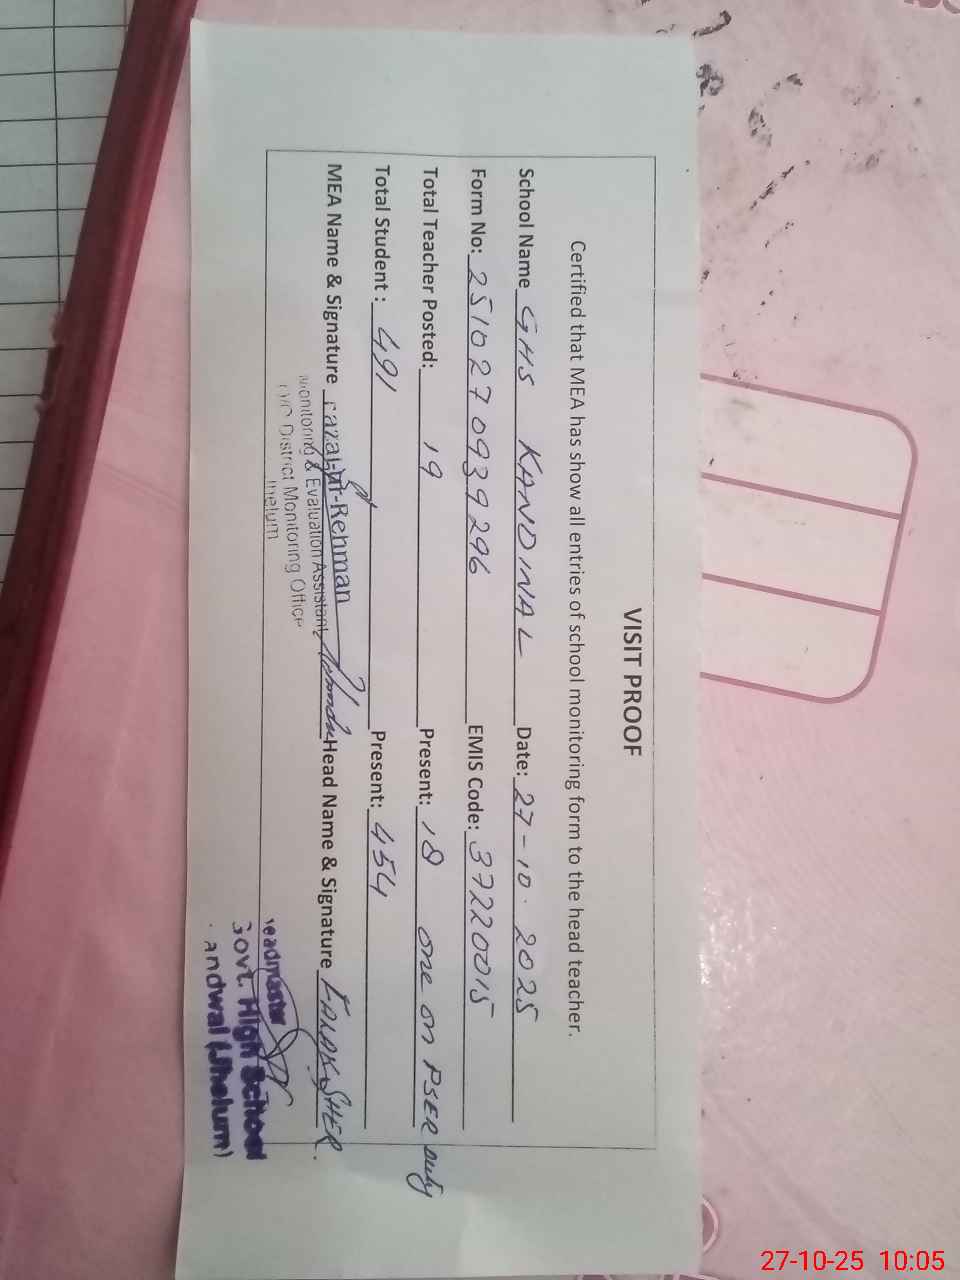 VISIT PROOF
Certified that MEA has show all entries of school monitoring form to the head teacher.
School Name GHS KANDINAL Date: 27-10-2025
Form No: 2510270939296 EMIS Code: 37220015
Total Teacher Posted: 19 Present: 18 one on PSER duty
Total Student : 491 Present: 454
MEA Name & Signature Fazal-ur-Rehman Rehman Head Name & Signature SHER.
Monitoring & Evaluation Assistant
District Monitoring Office
Jhelum
Headmaster
Govt. High School
andwal (Jhelum)
27-10-25 10:05